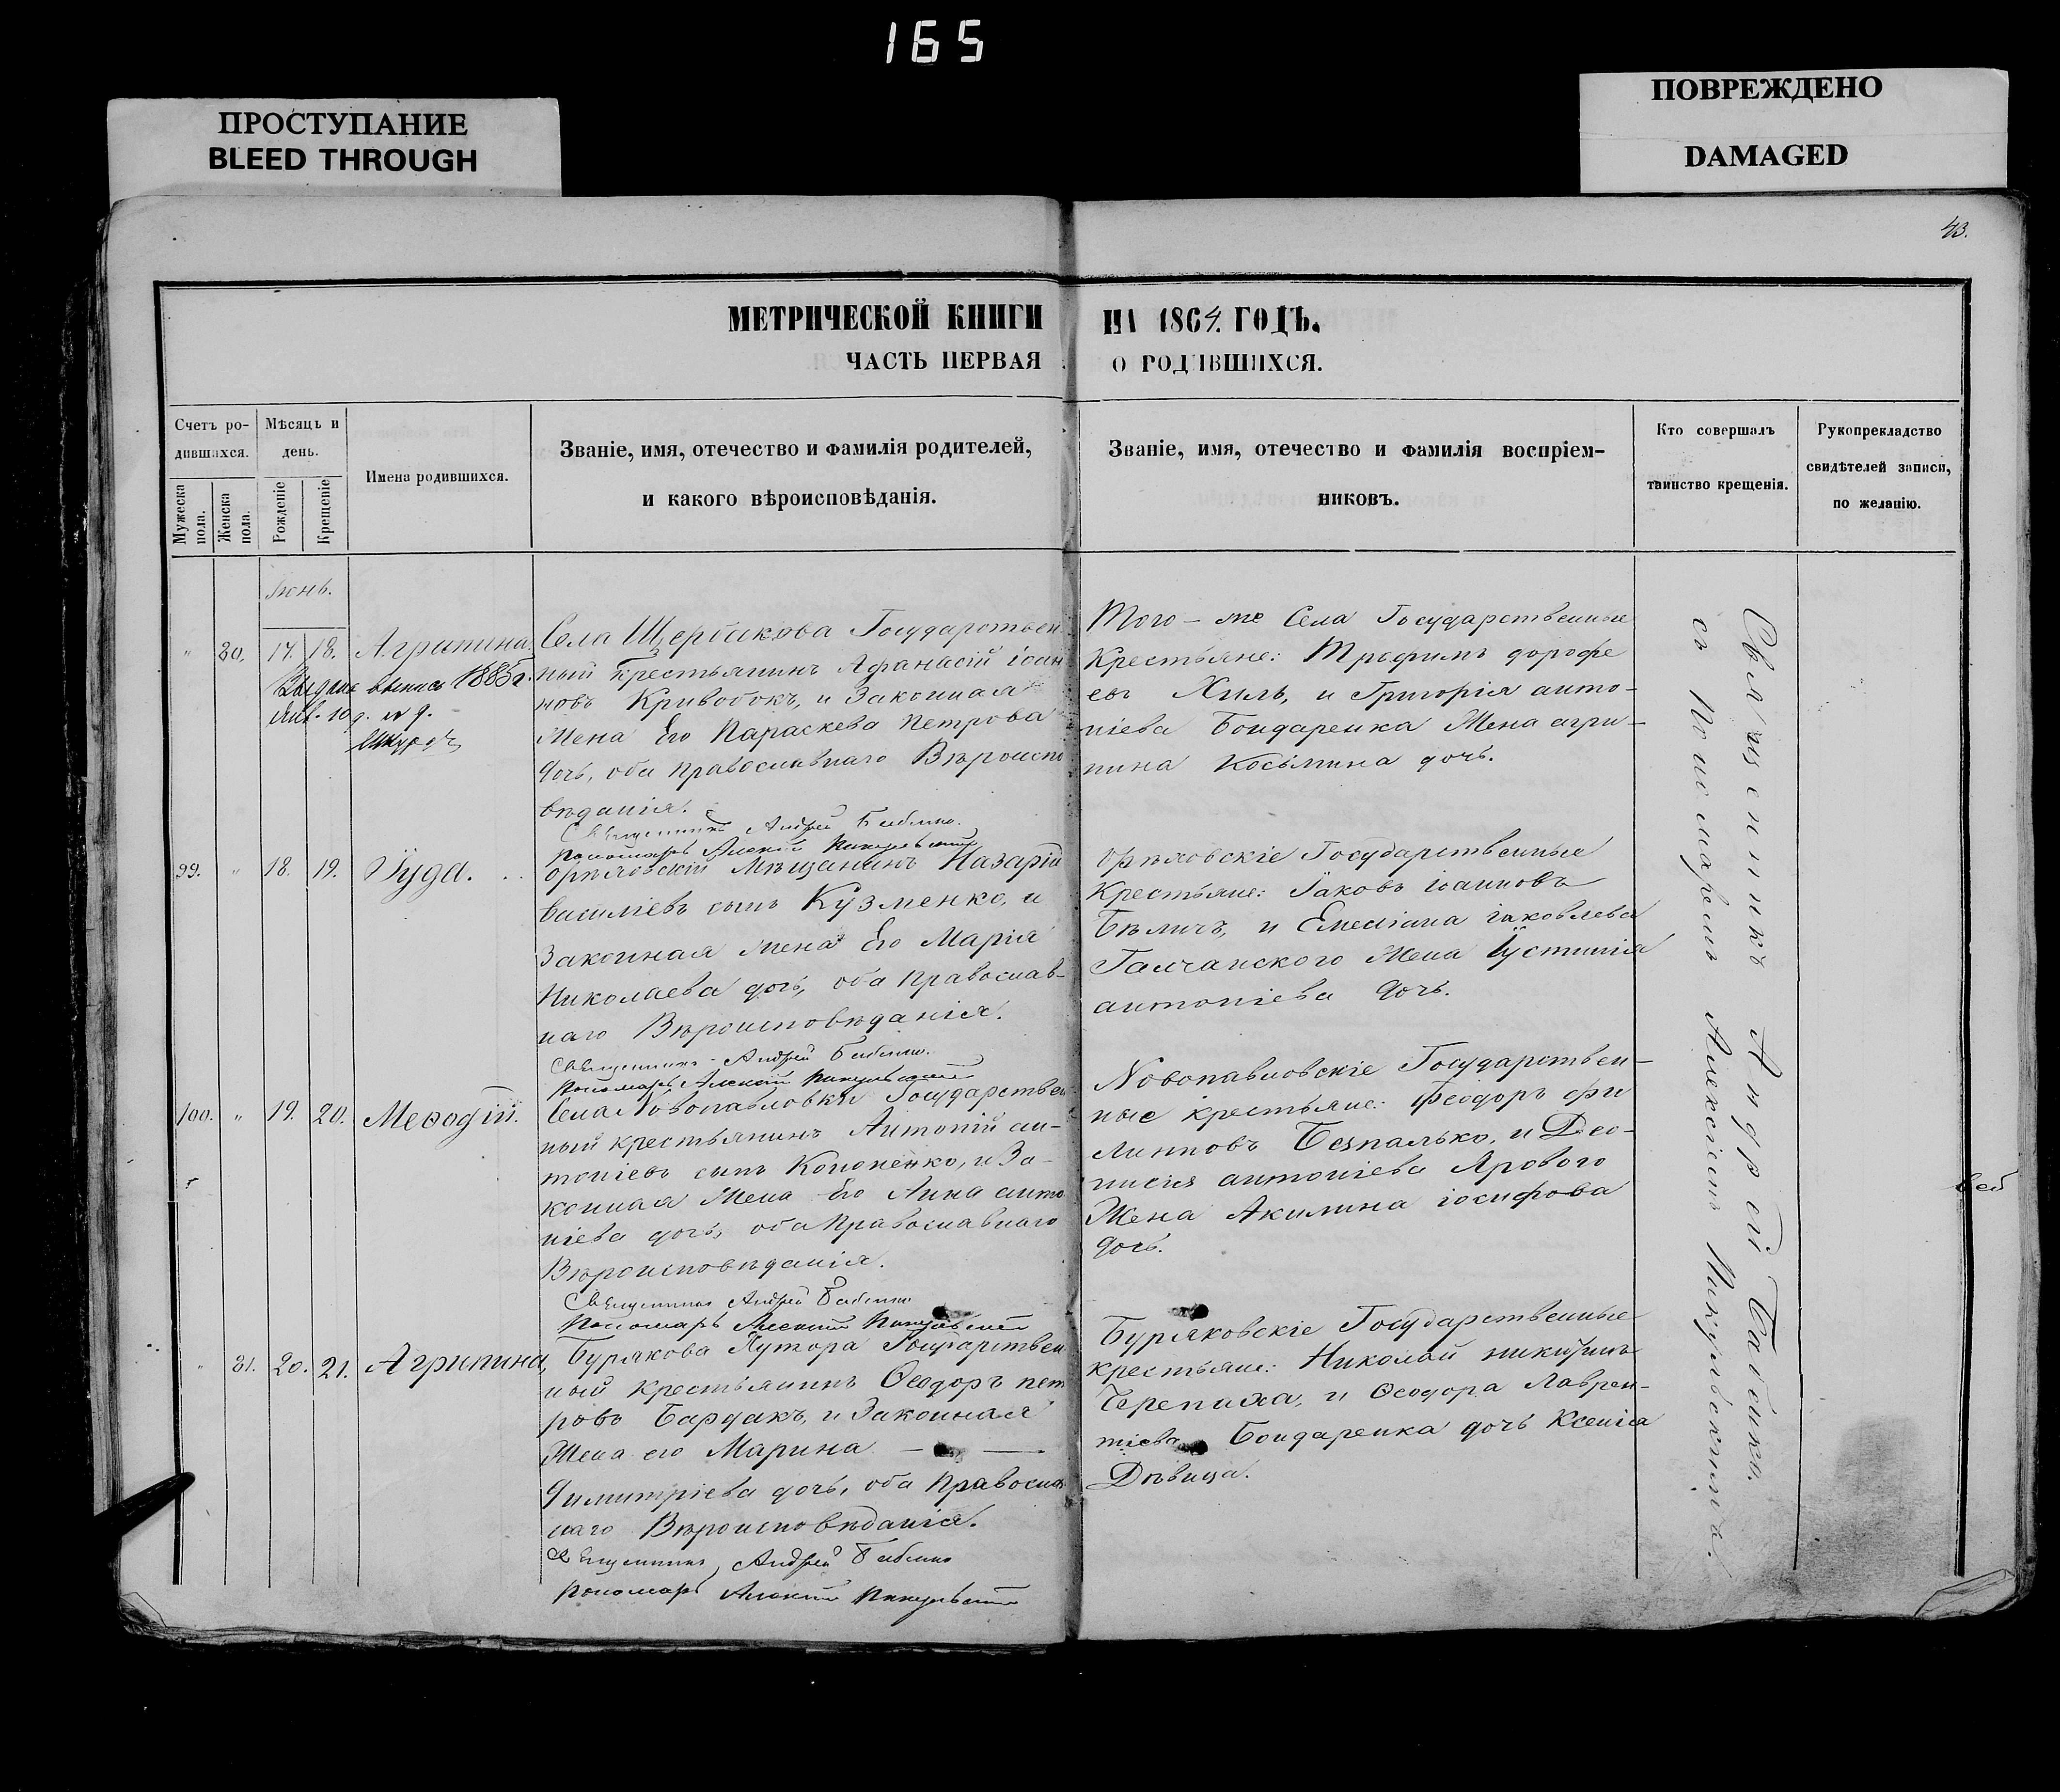 165
ПРОСТУПАНИЕ
BLEED THROUGH
ПОВРЕЖДЕНО
DAMAGED
43.
МЕТРИЧЕСКОЙ КНИГИ НА 1864. ГОДЪ.
ЧАСТЬ ПЕРВАЯ О РОДИВШИХСЯ.
Счетъ ро-
дившихся.
Мужеска пола.
Женска пола.
Мѣсяцъ и
день.
Рожденіе
Крещеніе
Имена родившихся.
Званіе, имя, отечество и фамилія родителей,
и какого вѣроисповѣданія.
Званіе, имя, отечество и фамилія воспріем-
никовъ.
Кто совершалъ
таинство крещенія.
Рукоприкладство
свидѣтелей записи,
по желанію.
Іюнь.
" 80. 17. 18. Агрипина.
Выдана выпись 1885 г.
Янв. 10 д. № 9.
Села Щербакова Государствен-
ный крестьянинъ Афанасій іоан
новъ Кривобокъ, и Законная
Жена Его Параскева Петрова
дочь, оба православнаго Вѣроиспо
вѣданія.
Священникъ Андрей Бабенко.
Пономарь Алексій Пикульскій
Того-же Села Государственные
Крестьяне: Трофимъ дорофе
евъ Хиль, и Григорія анто-
ніева Бондаренка Жена агри-
пина Косьмина дочь.
99. " 18. 19. Іуда.
орѣховскій Мѣщанинъ Назарій
василіевъ сынъ Кузменко, и
Законная жена Его Марія
Николаева дочь, оба православ-
наго Вѣроисповѣданія.
Священникъ Андрей Бабенко.
Пономарь Алексій Пикульскій
Орѣховскіе Государственные
Крестьяне: Іаковъ іоанновъ
Бѣличъ, и Емеліана іаковлева
Галчанского Жена Іустинія
антоніева дочь.
100. " 19. 20. Меѳодій.
Села Новопавловки Государствен
ный крестьянинъ Антоній ан-
тоніевъ сынъ Кононенко, и За-
конная Жена Его Анна анто
ніева дочь, оба Православнаго
Вѣроисповѣданія.
Священникъ Андрей Бабенко
Пономарь Алексій Пикульскій
Новопавловскіе Государствен-
ные крестьяне: Феодоръ фи
липповъ Безпалько, и Діо-
нисія антоніева Ярового
Жена Акилина іосифова
дочь.
" 81. 20. 21. Агрипина,
Бурякова Хутора Государствен
ный крестьянинъ Ѳеодоръ пет
ровъ Бардакъ, и Законная
Жена его Марина
Димитріева дочь, оба Православ
наго Вѣроисповѣданія.
Священникъ Андрей Бабенко
Пономарь Алексій Пикульскій
Буряковскіе Государственные
крестьяне: Николай никитинъ
Черепаха, и Ѳеодора Лаврен-
тіева Бондаренка дочь Ксенія
Дѣвица.
Священникъ Андрей Бабенко.
съ Пономаремъ Алексіемъ Пикульскимъ.